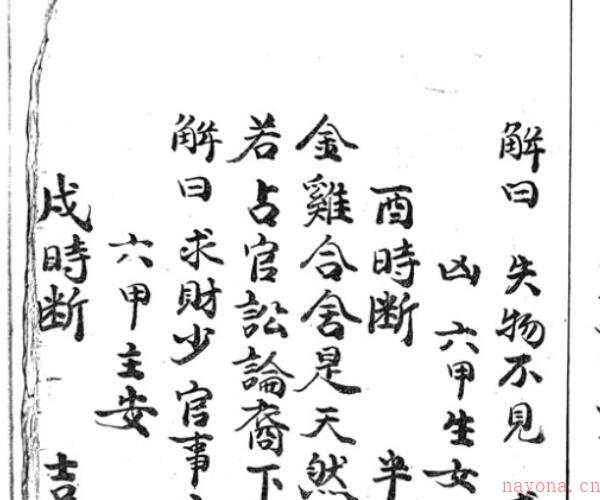 解曰 失物不見
凶 六甲生女
酉時斷 半
金雞合舍是天然
若占官訟論裔下
解曰 求財少 官事
六甲主安
戌時斷 吉
nayona.cn